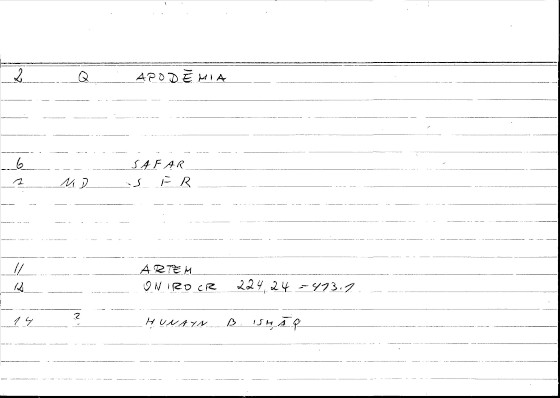 2 Q APODĒMIA
6 SAFAR
7 MD S F R
11 ARTEM
12 ONIROCR 224,24 = 413.1
14 ? ḤUNAYN B ISḤĀQ